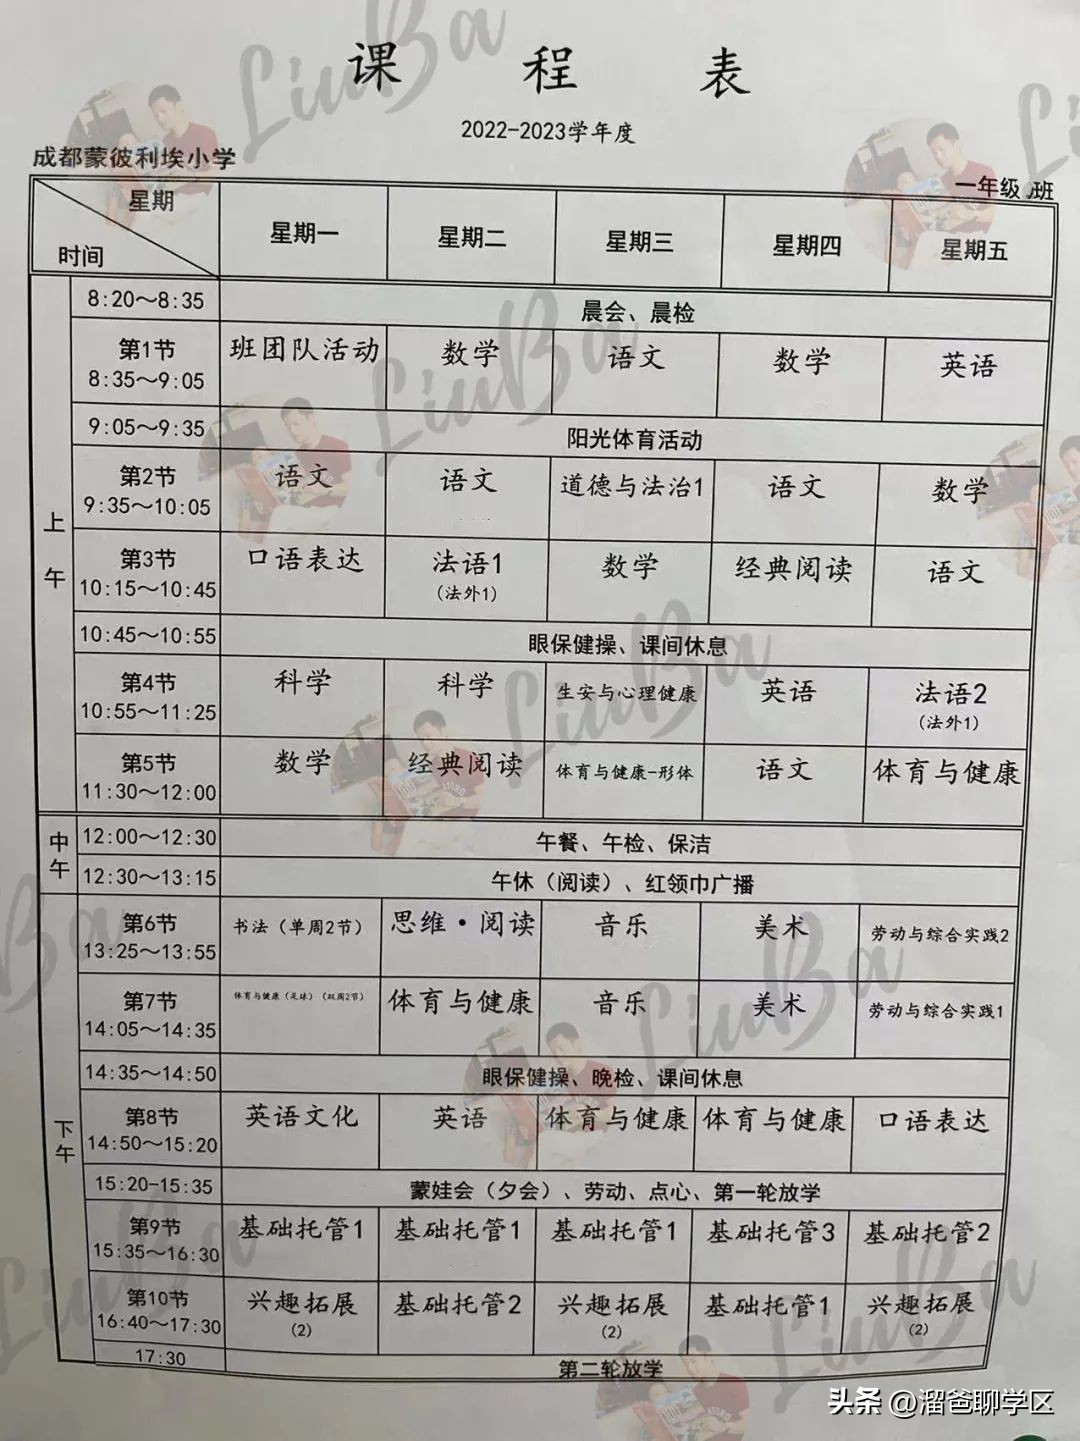 课 程 表
2022-2023学年度
成都蒙彼利埃小学
一年级 班
星期
时间
星期一 星期二 星期三 星期四 星期五
上午
8:20~8:35 晨会、晨检
第1节 8:35~9:05 班团队活动 数学 语文 数学 英语
9:05~9:35 阳光体育活动
第2节 9:35~10:05 语文 语文 道德与法治1 语文 数学
第3节 10:15~10:45 口语表达 法语1 (法外1) 数学 经典阅读 语文
10:45~10:55 眼保健操、课间休息
第4节 10:55~11:25 科学 科学 生安与心理健康 英语 法语2 (法外1)
第5节 11:30~12:00 数学 经典阅读 体育与健康-形体 语文 体育与健康
中午
12:00~12:30 午餐、午检、保洁
12:30~13:15 午休(阅读)、红领巾广播
下午
第6节 13:25~13:55 书法(单周2节) 思维·阅读 音乐 美术 劳动与综合实践2
第7节 14:05~14:35 体育与健康(足球)(双周2节) 体育与健康 音乐 美术 劳动与综合实践1
14:35~14:50 眼保健操、晚检、课间休息
第8节 14:50~15:20 英语文化 英语 体育与健康 体育与健康 口语表达
15:20-15:35 蒙娃会(夕会)、劳动、点心、第一轮放学
第9节 15:35~16:30 基础托管1 基础托管1 基础托管1 基础托管3 基础托管2
第10节 16:40~17:30 兴趣拓展 (2) 基础托管2 兴趣拓展 (2) 基础托管1 兴趣拓展 (2)
17:30 第二轮放学
LiuBa
头条 @溜爸聊学区